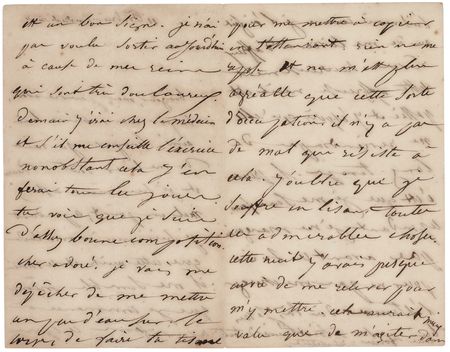 est un bon signe. je n'ai
pas voulu sortir aujourd'hui
à cause de mes reins
qui sont très douloureux.
Demain j'irai chez le médecin
et s'il me conseille l'exercice
nonobstant cela j'en
ferai tous les jours
tu vois que je suis
d'assez bonne composition.
cher adoré. je vais me
dépêcher de me mettre
un peu d'eau sur le
corps, de faire ta
pour me mettre à copier
rien ne me
et ne m'est plus
agréable que cette sorte
d'occupation, il n'y a pas
de mal qui résiste à
cela. J'oublie que je
souffre en lisant toutes
ces admirables choses.
cette nuit j'avais presque
envie de me relever pour
m'y mettre, cela aurait mieux
valu que de m'agiter dans